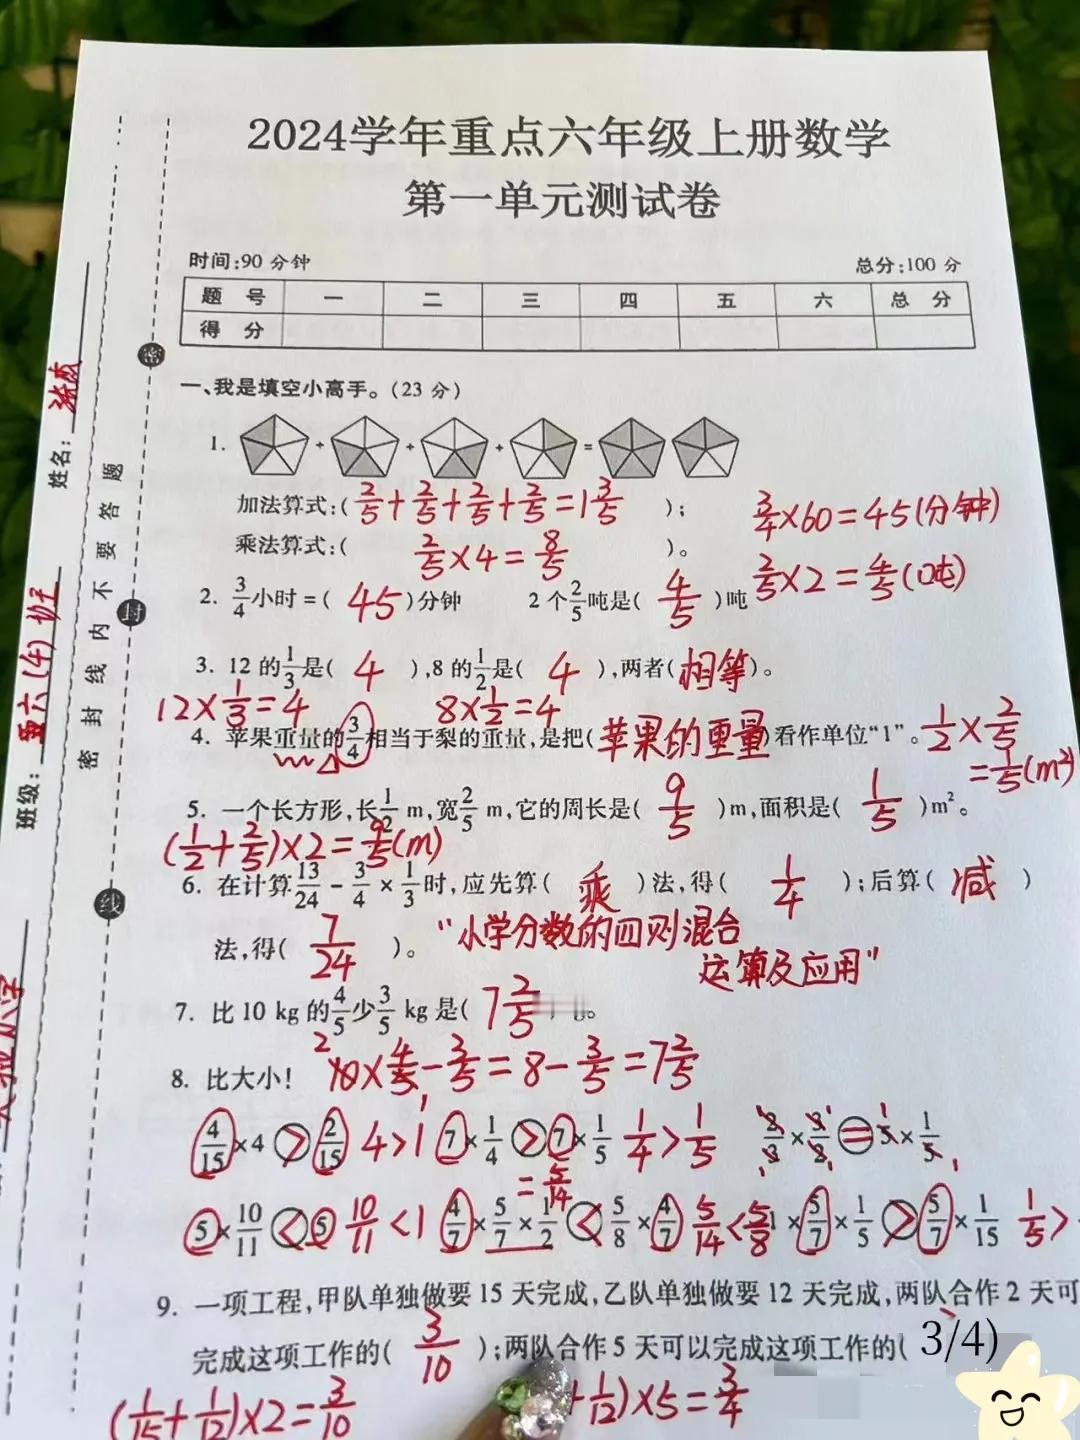 2024学年重点六年级上册数学
第一单元测试卷
时间:90 分钟 总分:100 分
题 号 一 二 三 四 五 六 总 分
得 分
一、我是填空小高手。(23 分)
1. + + + =
加法算式:( 2/5+2/5+2/5+2/5=1 3/5 );
3/4×60=45(分钟)
乘法算式:( 2/5×4=8/5 )。
2/5×2=4/5(吨)
2. 3/4小时=( 45 )分钟 2 个2/5吨是( 4/5 )吨
3. 12 的1/3是( 4 ),8 的1/2是( 4 ),两者(相等)。
12×1/3=4 8×1/2=4
4. 苹果重量的3/4相当于梨的重量,是把(苹果的重量)看作单位“1”。
1/2×2/5
=1/5(m²)
5. 一个长方形,长1/2 m,宽2/5 m,它的周长是( 9/5 )m,面积是( 1/5 )m²。
(1/2+2/5)×2=9/5(m)
6. 在计算13/24-3/4×1/3时,应先算( 乘 )法,得( 1/4 );后算( 减 )
法,得( 7/24 )。
“小学分数的四则混合
运算及应用”
7. 比 10 kg 的4/5少3/5 kg 是( 7 2/5
10×4/5-3/5=8-3/5=7 2/5
8. 比大小!
4/15×4>2/15 4>1 7×1/4>7×1/5 1/4>1/5 2/3×3/2=5×1/5
=5/14
5×10/11<5 10/11<1 4/7×5/7×1/2<5/8×4/7 5/14<5/8 1×5/7×1/5>5/7×1/15 1/5>
9. 一项工程,甲队单独做要 15 天完成,乙队单独做要 12 天完成,两队合作 2 天可
完成这项工作的( 3/10 );两队合作 5 天可以完成这项工作的( 3/4)
(1/15+1/12)×2=3/10 +1/12)×5=3/4
密 封 线 内 不 要 答 题
密
封
线
姓名:
班级: 六(4)